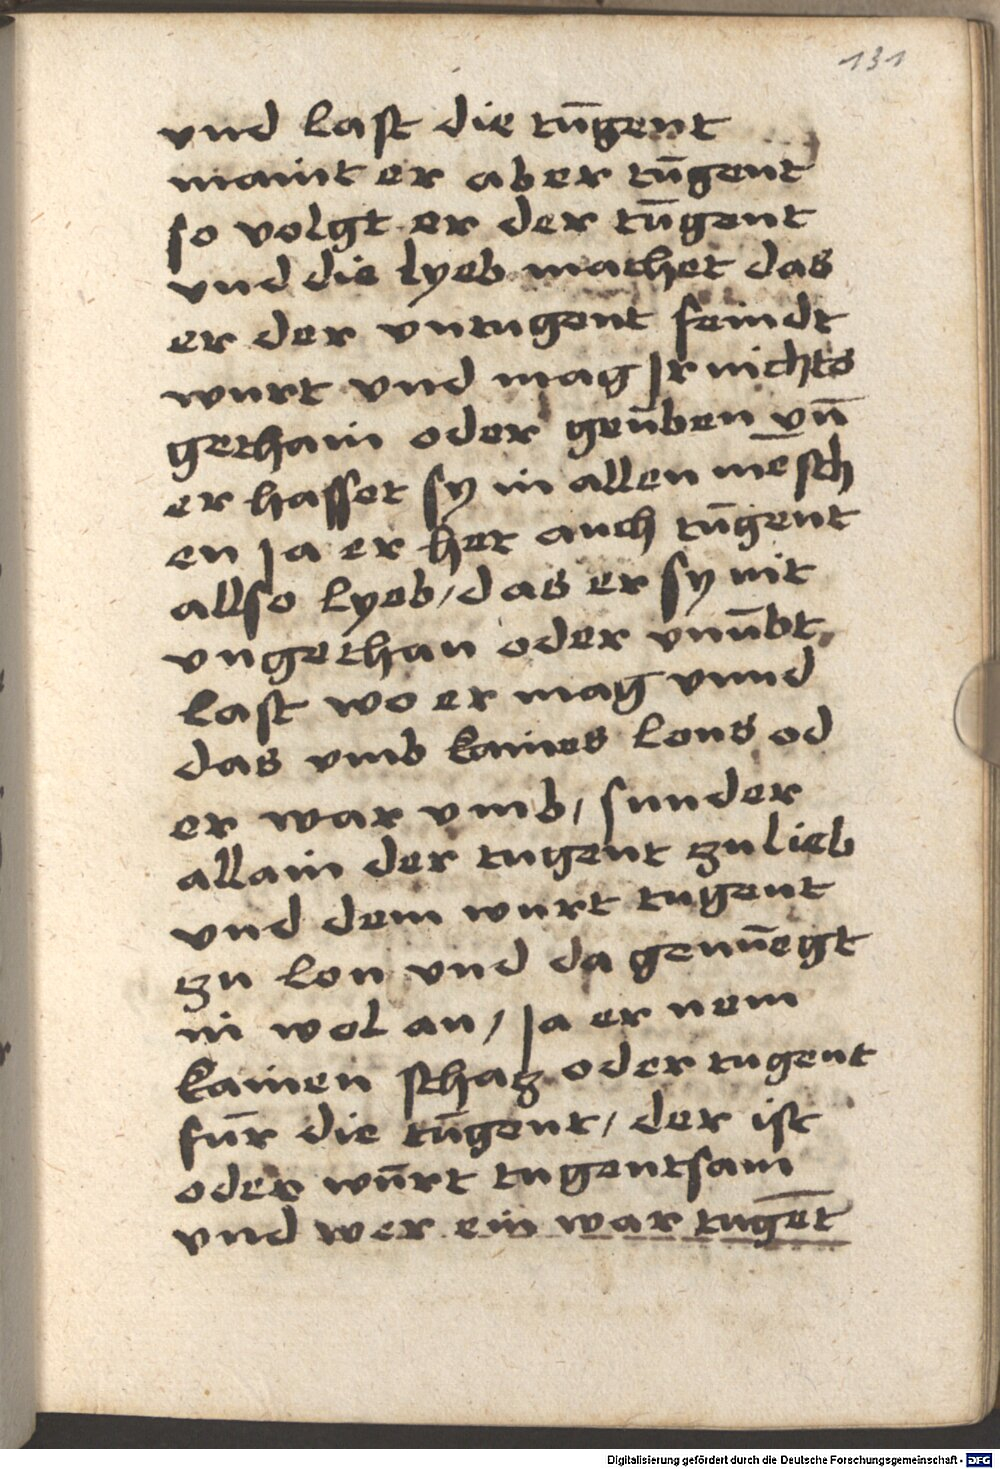 131
vnd last die tūgent
maint er aber tūgent
so volgt er der tūgent
vnd die lyeb machet das
er der vntugent feindt
wurt vnd mag Jr nichts
gethain oder geūben vn̄
er hasset sy in allen mēsch
en Ja er het auch tūgent
allso lyeb/das er sy nit
vngethan oder vnūbt
last wo er mag vnnd
das vmb kaines lons od
er war vmb/ sunder
allain der tugent zu lieb
vnd dem wurt tugent
zu lon vnd da genūegt
in wol an/ Ja er nem
kainen schaz oder tugent
fūr die tūgent/ der ist
oder wūrt tugentsam
vnd wer ein war tugēt
Digitalisierung gefördert durch die Deutsche Forschungsgemeinschaft - DFG